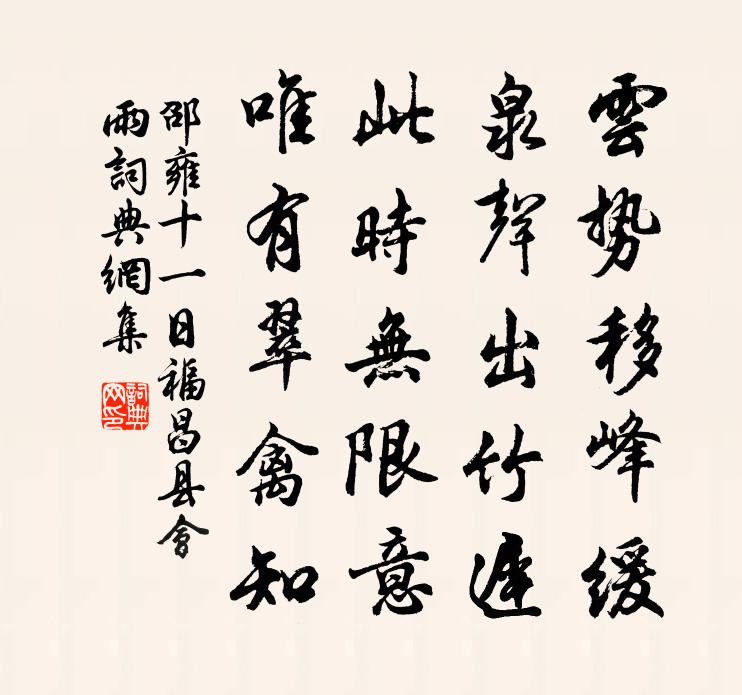 雲势移峰缓
泉聲出竹遲
此時無限意
唯有翠禽知
邵雍十一日福昌县會
雨詞典網集
詞典网印